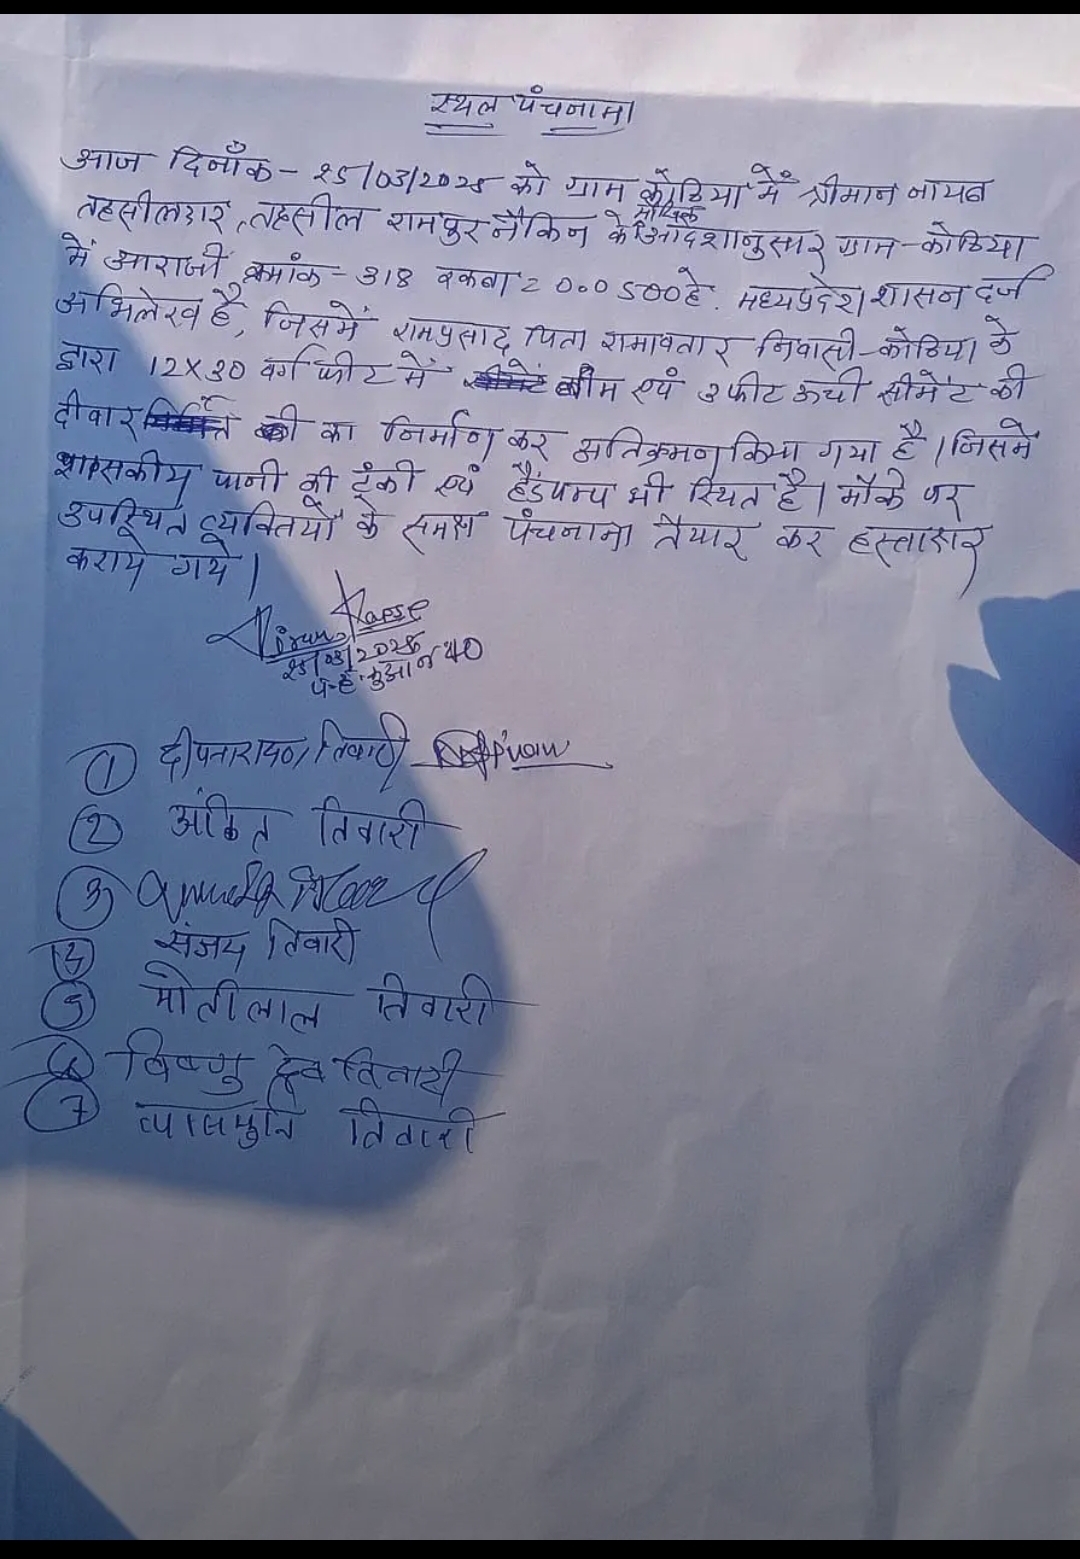 स्थल पंचनामा
आज दिनाँक - 25/03/2025 को ग्राम कोठिया में श्रीमान नायब
तहसीलदार, तहसील रामपुर नैकिन के मौखिक आदेशानुसार ग्राम - कोठिया
में आराजी क्रमांक - 318 रकबा = 0.0500 हे. मध्यप्रदेश शासन दर्ज
अभिलेख है, जिसमें रामप्रसाद पिता रामावतार निवासी - कोठिया के
द्वारा 12x30 वर्ग फीट में बीम एवं 3 फीट ऊची सीमेंट की
दीवार का निर्माण कर अतिक्रमण किया गया है। जिसमें
शासकीय पानी की टंकी एवं हैंडपम्प भी स्थित है। मौके पर
उपस्थित व्यक्तियों के समक्ष पंचनामा तैयार कर हस्ताक्षर
कराये गये।
25/03/2025
प.ह. भुआन 40
① दीपनारायण तिवारी
② अंकित तिवारी
③
४ संजय तिवारी
⑤ मोतीलाल तिवारी
⑥ विष्णु देव तिवारी
⑦ व्यासमुनि तिवारी